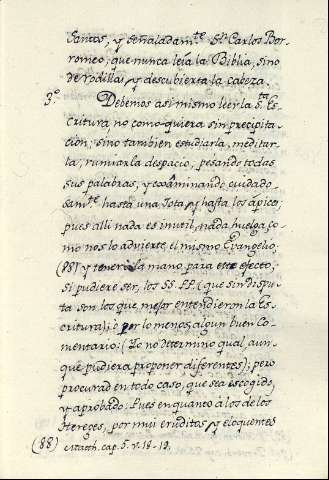 Santos, y señaladam.te S.n Carlos Bor-
romeo, que nunca leía la Biblia, sino
de rodillas, y descubierta la cabeza.
3.º Debemos asi mismo leer la S.ta Es-
critura, no como quiera sin precipita-
cion; sino tambien estudiarla, meditar-
la, rumiarla despacio, pesando todas
sus palabras, y exâminando cuidado-
sam.te hasta una Jota, y hasta los apices;
pues alli nada es inutil, nada huelga, co-
mo nos lo advierte, el mismo Evangelio;
(88) y tener à la mano, para este efecto,
si pudiere ser, los SS. PP. (que sin dispu-
ta son los que mejor entendieron la Es-
critura); ò por lo menos, algun buen Co-
mentario: (Yo no determino qual, aun-
que pudiera proponer diferentes); pero
procurad en todo caso, que sea escogido,
y aprobado. Pues en quanto à los de los
Hereges, por mui eruditos, y eloquentes
(88) Matth. cap. 5. v. 18-19.